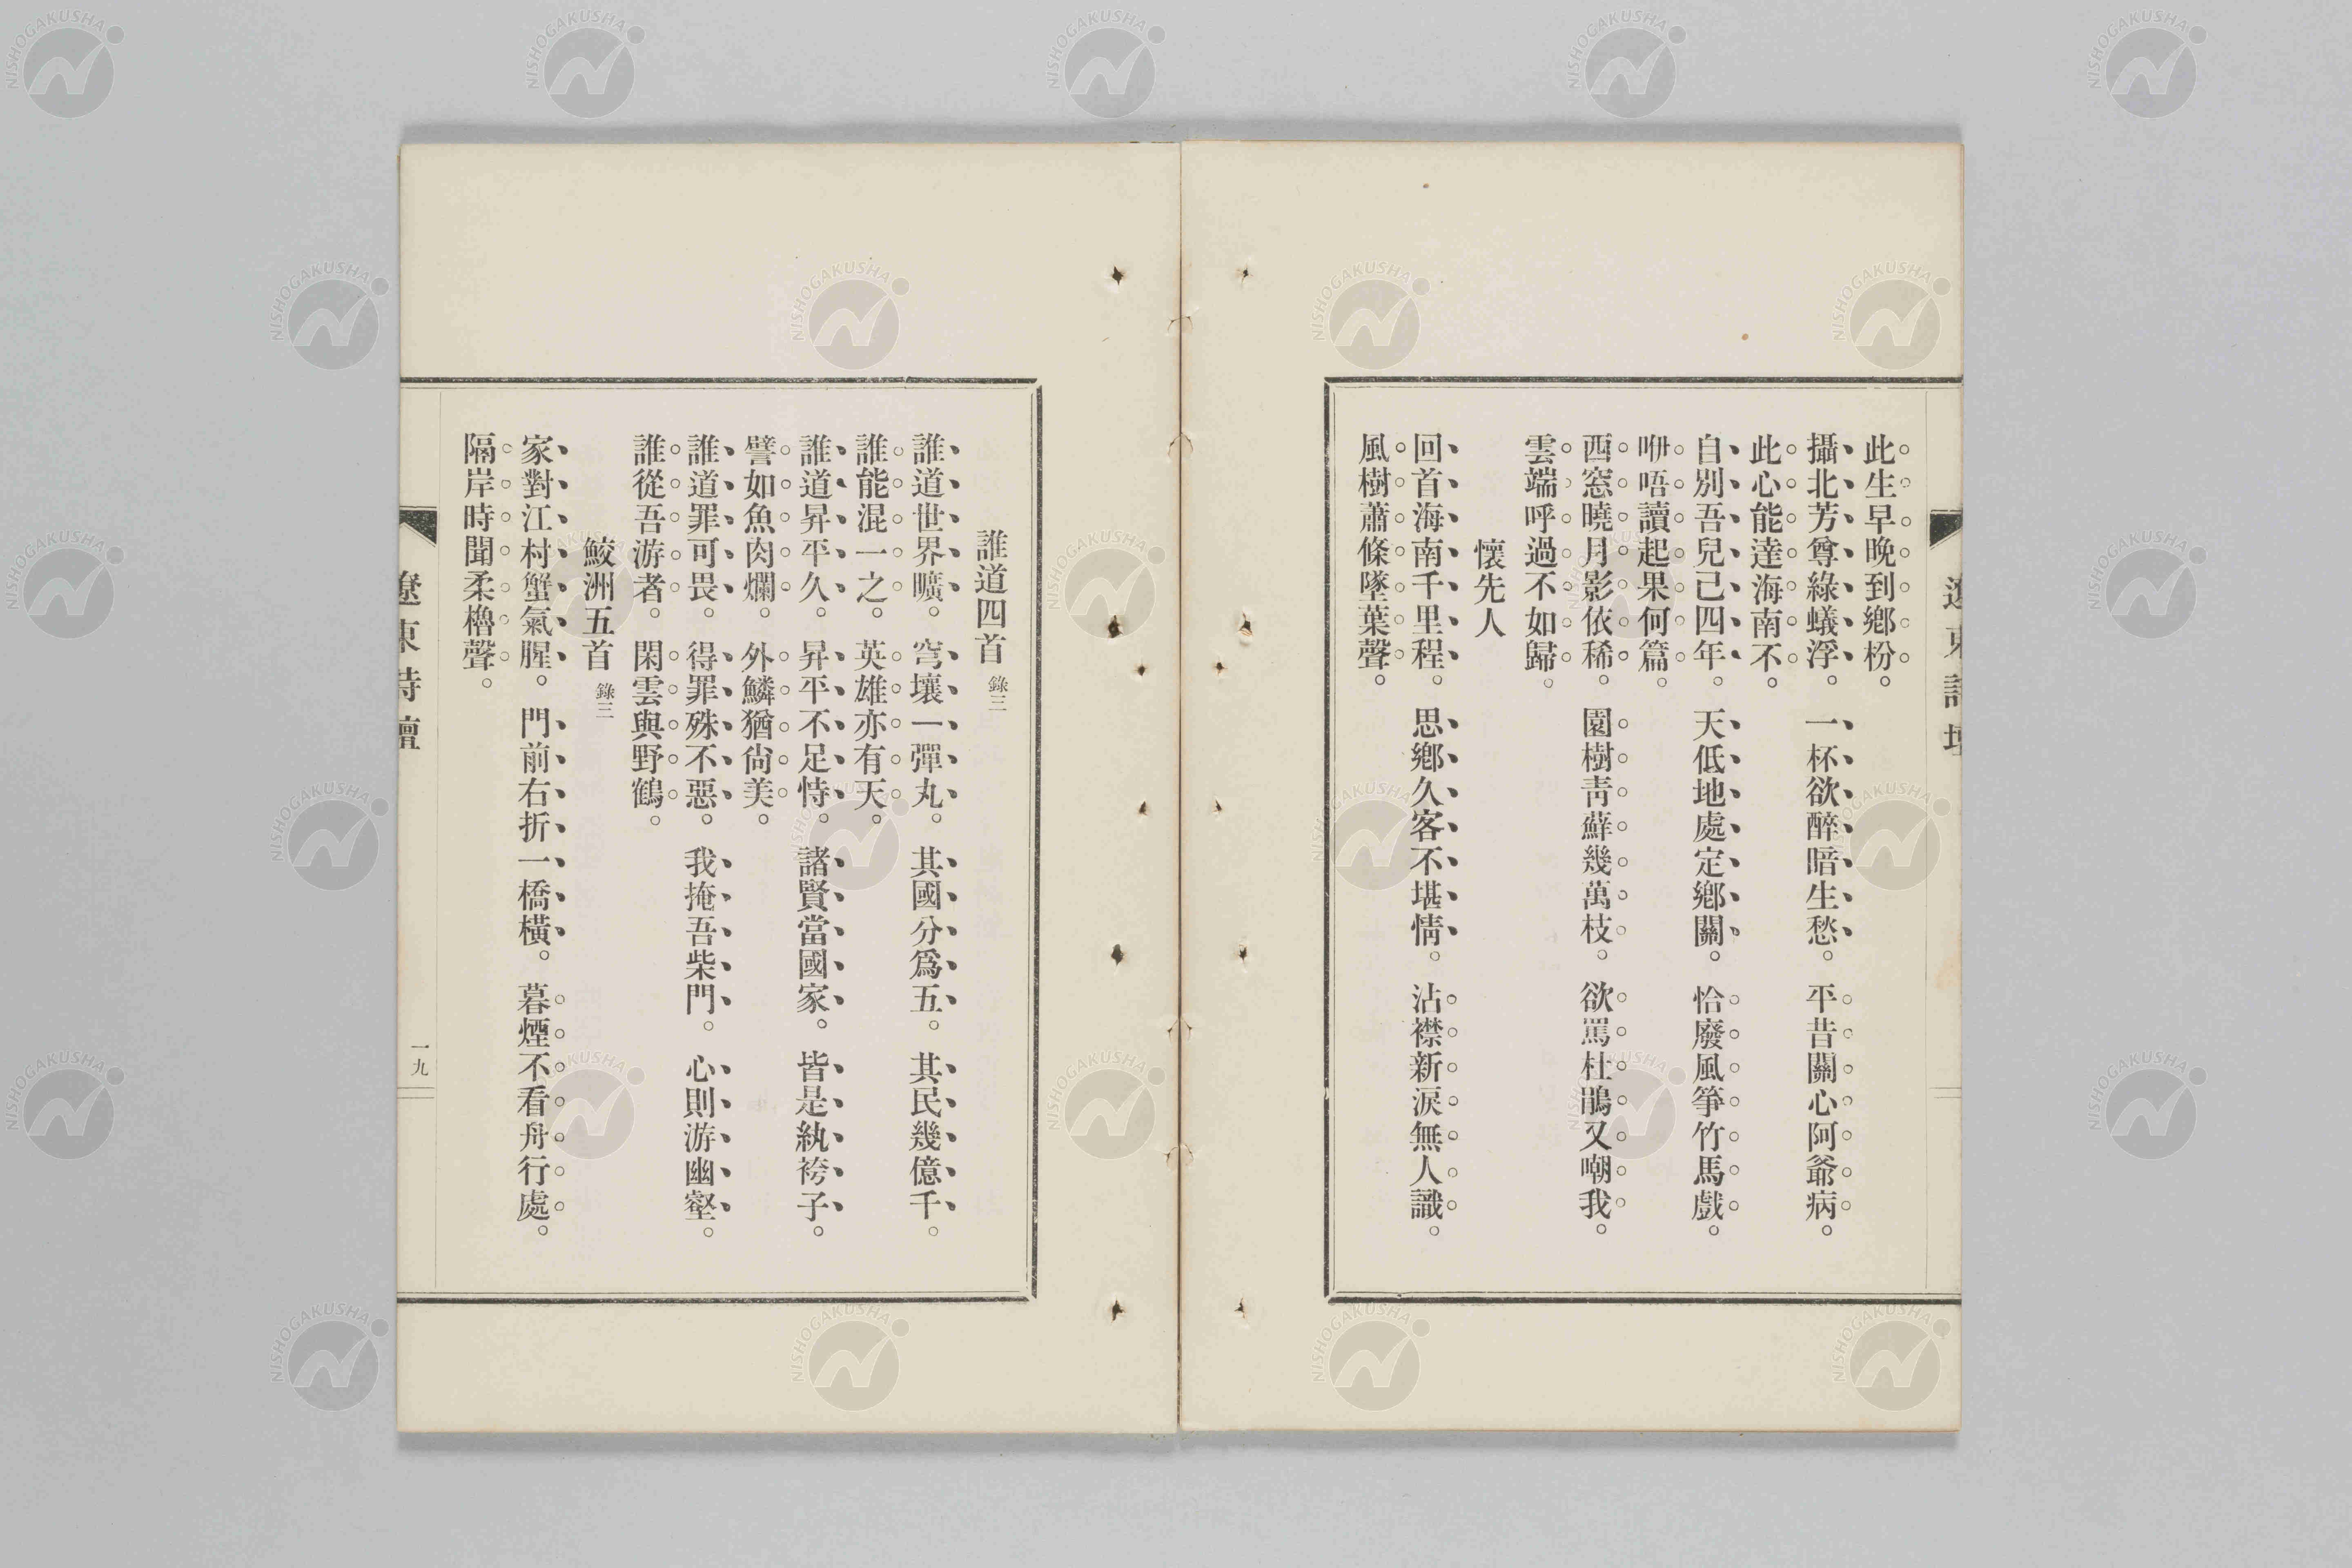 此生早晩到鄉枌。
攝北芳尊綠蟻浮。一杯欲醉暗生愁。平昔關心阿爺病。
此心能達海南不。
自別吾兒已四年。天低地處定鄉關。恰廢風箏竹馬戲。
咿唔讀起果何篇。
西窓曉月影依稀。園樹靑蘚幾萬枝。欲罵杜鵑又嘲我。
雲端呼過不如歸。
懷先人
回首海南千里程。思鄉久客不堪情。沾襟新淚無人識。
風樹蕭條墜葉聲。
誰道四首 錄三
誰道世界曠。穹壤一彈丸。其國分爲五。其民幾億千。
誰能混一之。英雄亦有天。
誰道昇平久。昇平不足恃。諸賢當國家。皆是紈袴子。
譬如魚肉爛。外鱗猶尙美。
誰道罪可畏。得罪殊不惡。我掩吾柴門。心則游幽壑。
誰從吾游者。閑雲與野鶴。
鮫洲五首 錄三
家對江村蟹氣腥。門前右折一橋橫。暮煙不看舟行處。
隔岸時聞柔櫓聲。
遼東詩壇
一九
NISHOGAKUSHA